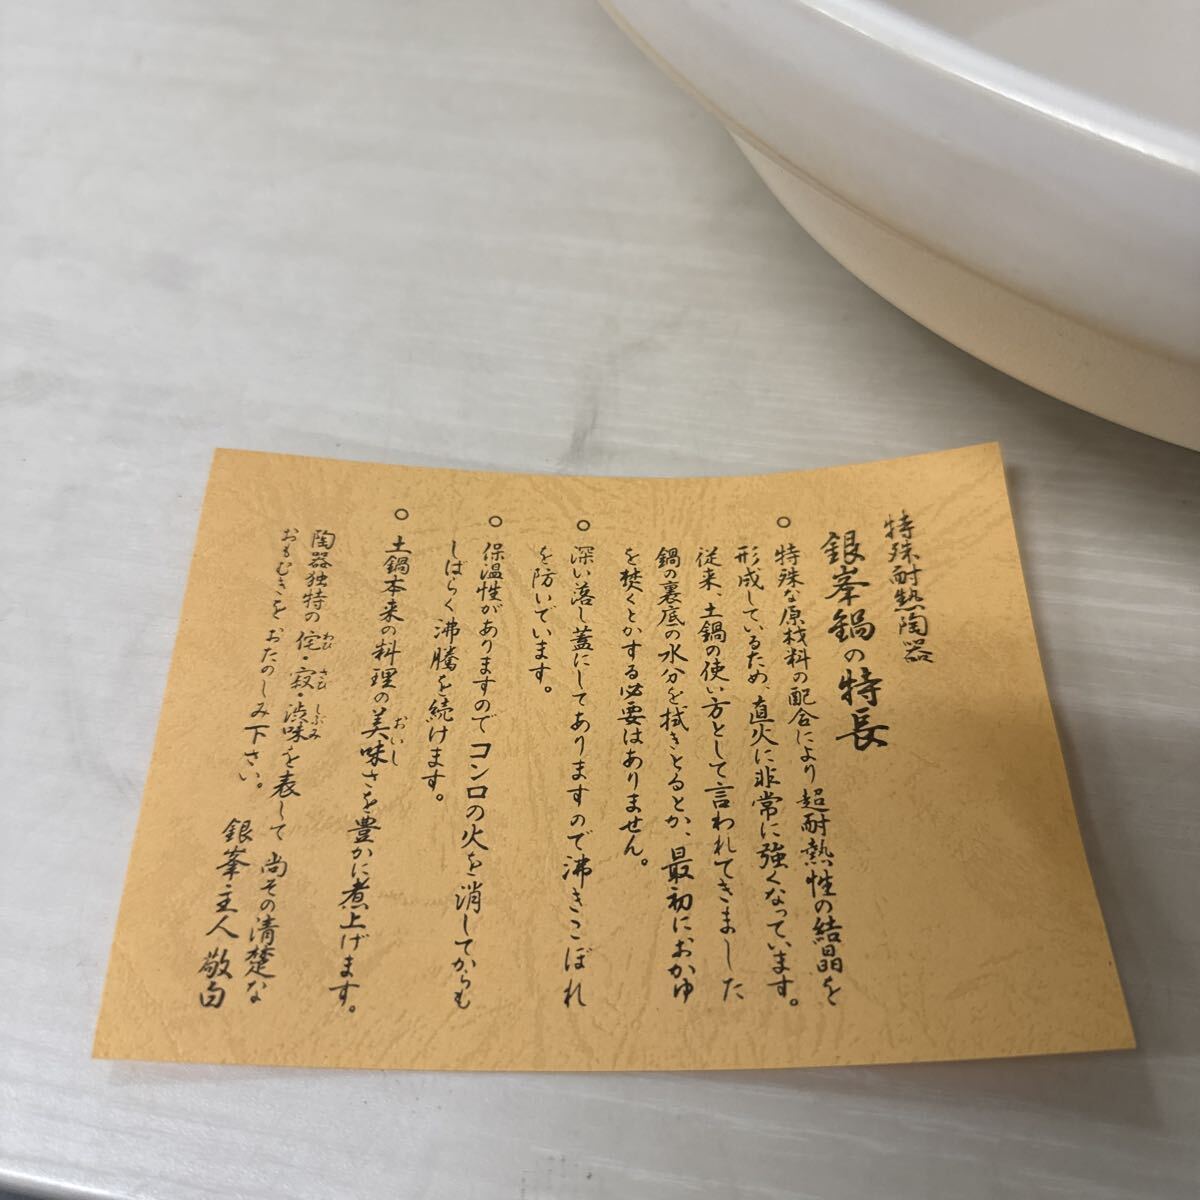 特殊耐熱陶器
銀峯鍋の特長
○ 特殊な原材料の配合により超耐熱性の結晶を
形成しているため、直火に非常に強くなっています。
従来、土鍋の使い方として言われてきました
鍋の裏底の水分を拭きとるとか、最初におかゆ
を焚くとかする必要はありません。
○ 深い落し蓋にしてありますので沸きこぼれ
を防いでいます。
○ 保温性がありますのでコンロの火を消してからも
しばらく沸騰を続けます。
○ 土鍋本来の料理の美味さを豊かに煮上げます。
おいし
陶器独特の侘・寂・渋味を表して尚その清楚な
わび さび しぶみ
おもむきをおたのしみ下さい。
銀峯主人 敬白